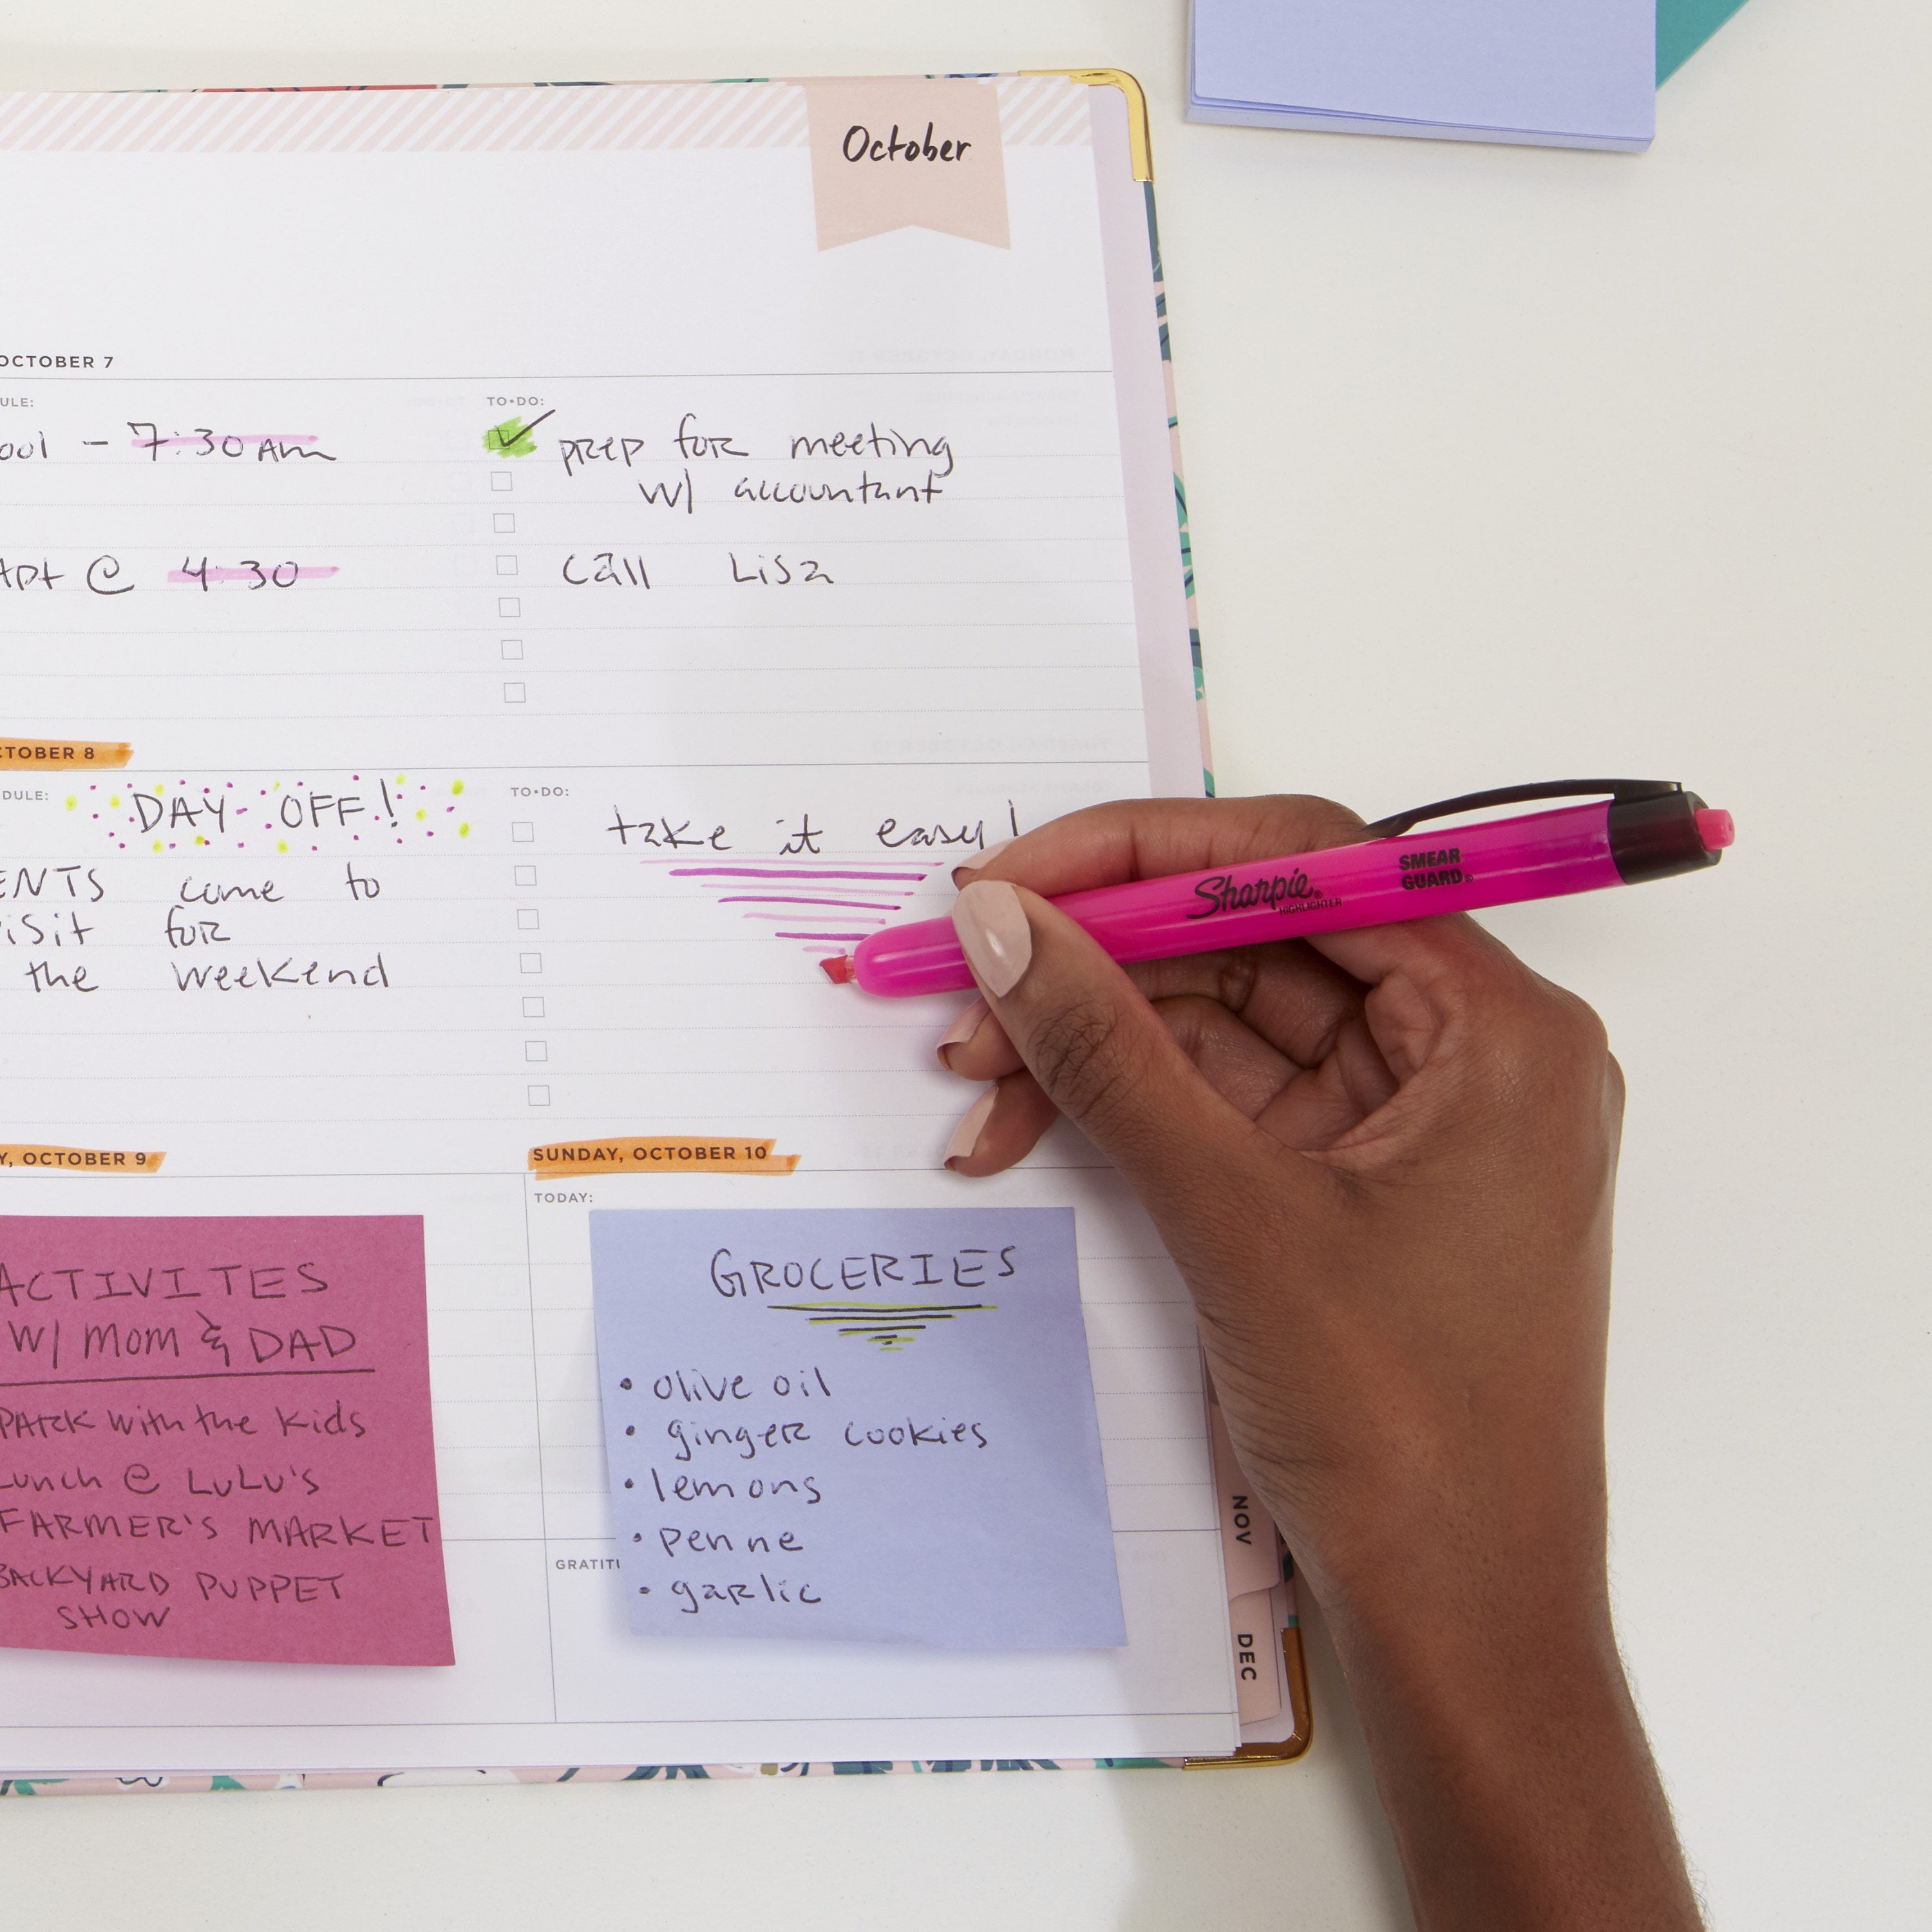 October
OCTOBER 7
ULE:
ool - 7:30 AM
Apt @ 4:30
TO•DO:
prep for meeting
w/ accountant
Call Lisa
CTOBER 8
DULE:
DAY OFF!
ENTS come to
visit for
the weekend
TO•DO:
take it easy!
Sharpie®
HIGHLIGHTER
SMEAR
GUARD®
Y, OCTOBER 9
ACTIVITES
W/ MOM & DAD
PARK with the kids
Lunch @ LuLu's
FARMER'S MARKET
BACKYARD PUPPET
SHOW
SUNDAY, OCTOBER 10
TODAY:
GROCERIES
• olive oil
• ginger cookies
• lemons
• penne
• garlic
GRATIT
NOV
DEC